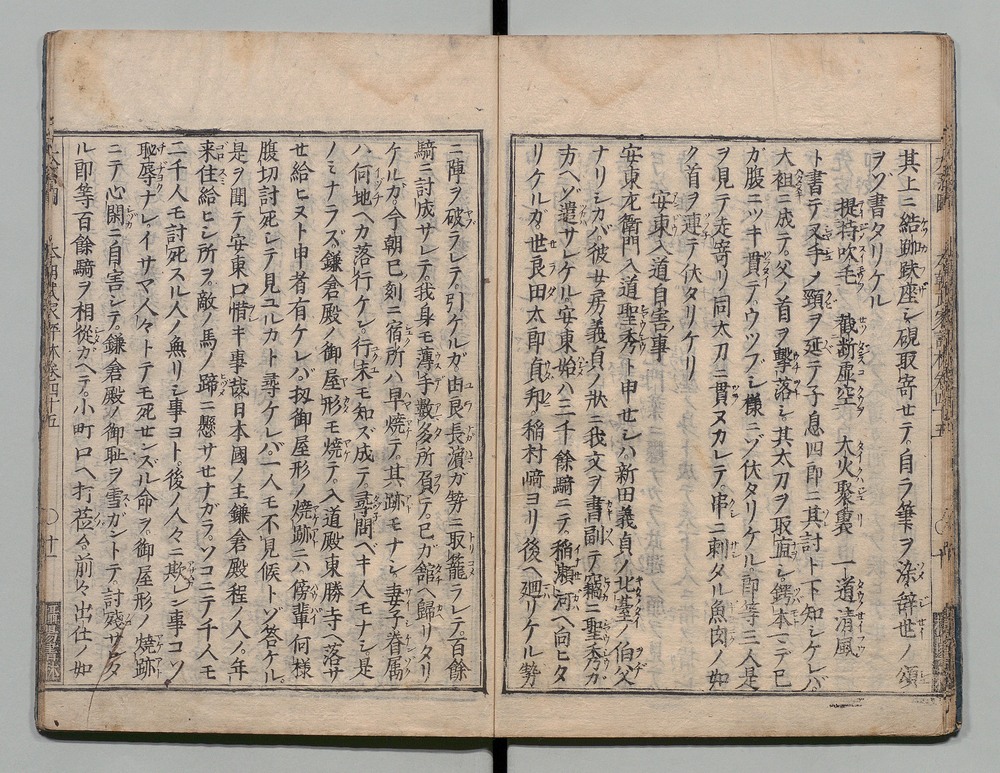 其上ニ結跏趺座シ硯取寄セテ。自ラ筆ヲ染辞世ノ頌
ヲゾ書タリケル
提持吹毛　截断虚空　大火聚裏　一道清風
ト書テ叉手メ頸ヲ延テ子息四郎ニ其討ト下知シケレバ。
大祖ニ成テ。父ノ首ヲ撃落シ。其太刀ヲ取直シ。鍔本ニデ己
ガ腹ニツキ貫テ。ウツブシ様ニゾ伏タリケル。郎等三人是
ヲ見テ走寄リ同太刀ニ貫ヌカレテ。串ニ刺タル魚肉ノ如
ク首ヲ連テ伏タリケリ
安東入道自害事
安東左衛門入道聖秀ト申セシハ。新田義貞ノ北臺ノ伯父
ナリシカバ彼女房義貞ノ状ニ我文ヲ書副テ。竊ニ聖秀ガ
方ヘゾ遣サレケル。安東始ハ三千餘騎ニテ。稲瀬河ヘ向ヒタ
リケルガ。世良田太郎貞邦。稲村﨑ヨリ後ヘ廻リケル勢
ニ陣ヲ破ラレテ。引ケルガ。由良長濵ガ勢ニ取籠ラレテ。百餘
騎ニ討成サレテ。我身モ薄手数多所負テ。己ガ舘ヘ歸リタリ
ケルガ。今朝巳刻ニ宿所ハ早焼テ。其跡モナシ妻子眷属
ハ何地ヘカ落行ケン。行末モ知ズ成テ。尋問ベキ人モナシ是
ノミナラズ。鎌倉殿ノ御屋形モ焼テ。入道殿東勝寺ヘ落サ
セ給ヒヌト申者有ケレバ。扨御屋形ノ焼跡ニハ傍輩何様
腹切討死シテ見ユルカト尋ケレバ。一人モ不見候トゾ答ケル。
是ヲ聞テ安東口惜キ事哉日本國ノ主鎌倉殿程ノ人ノ。年
来住給ヒシ所ヲ。敵ノ馬ノ蹄ニ懸サセナガラ。ソコニテ千人モ
二千人モ討死スル人ノ無リシ事ヨト。後ノ人々ニ欺レン事コソ
恥辱ナレ。イサマ人々トテモ死センズル命ヲ。御屋形ノ焼跡
ニテ心閑ニ自害シテ。鎌倉殿ノ御耻ヲ雪ガントテ。討殘サレタ
ル郎等百餘騎ヲ相從ガヘテ。小町口ヘ打莅今前々出仕ノ如